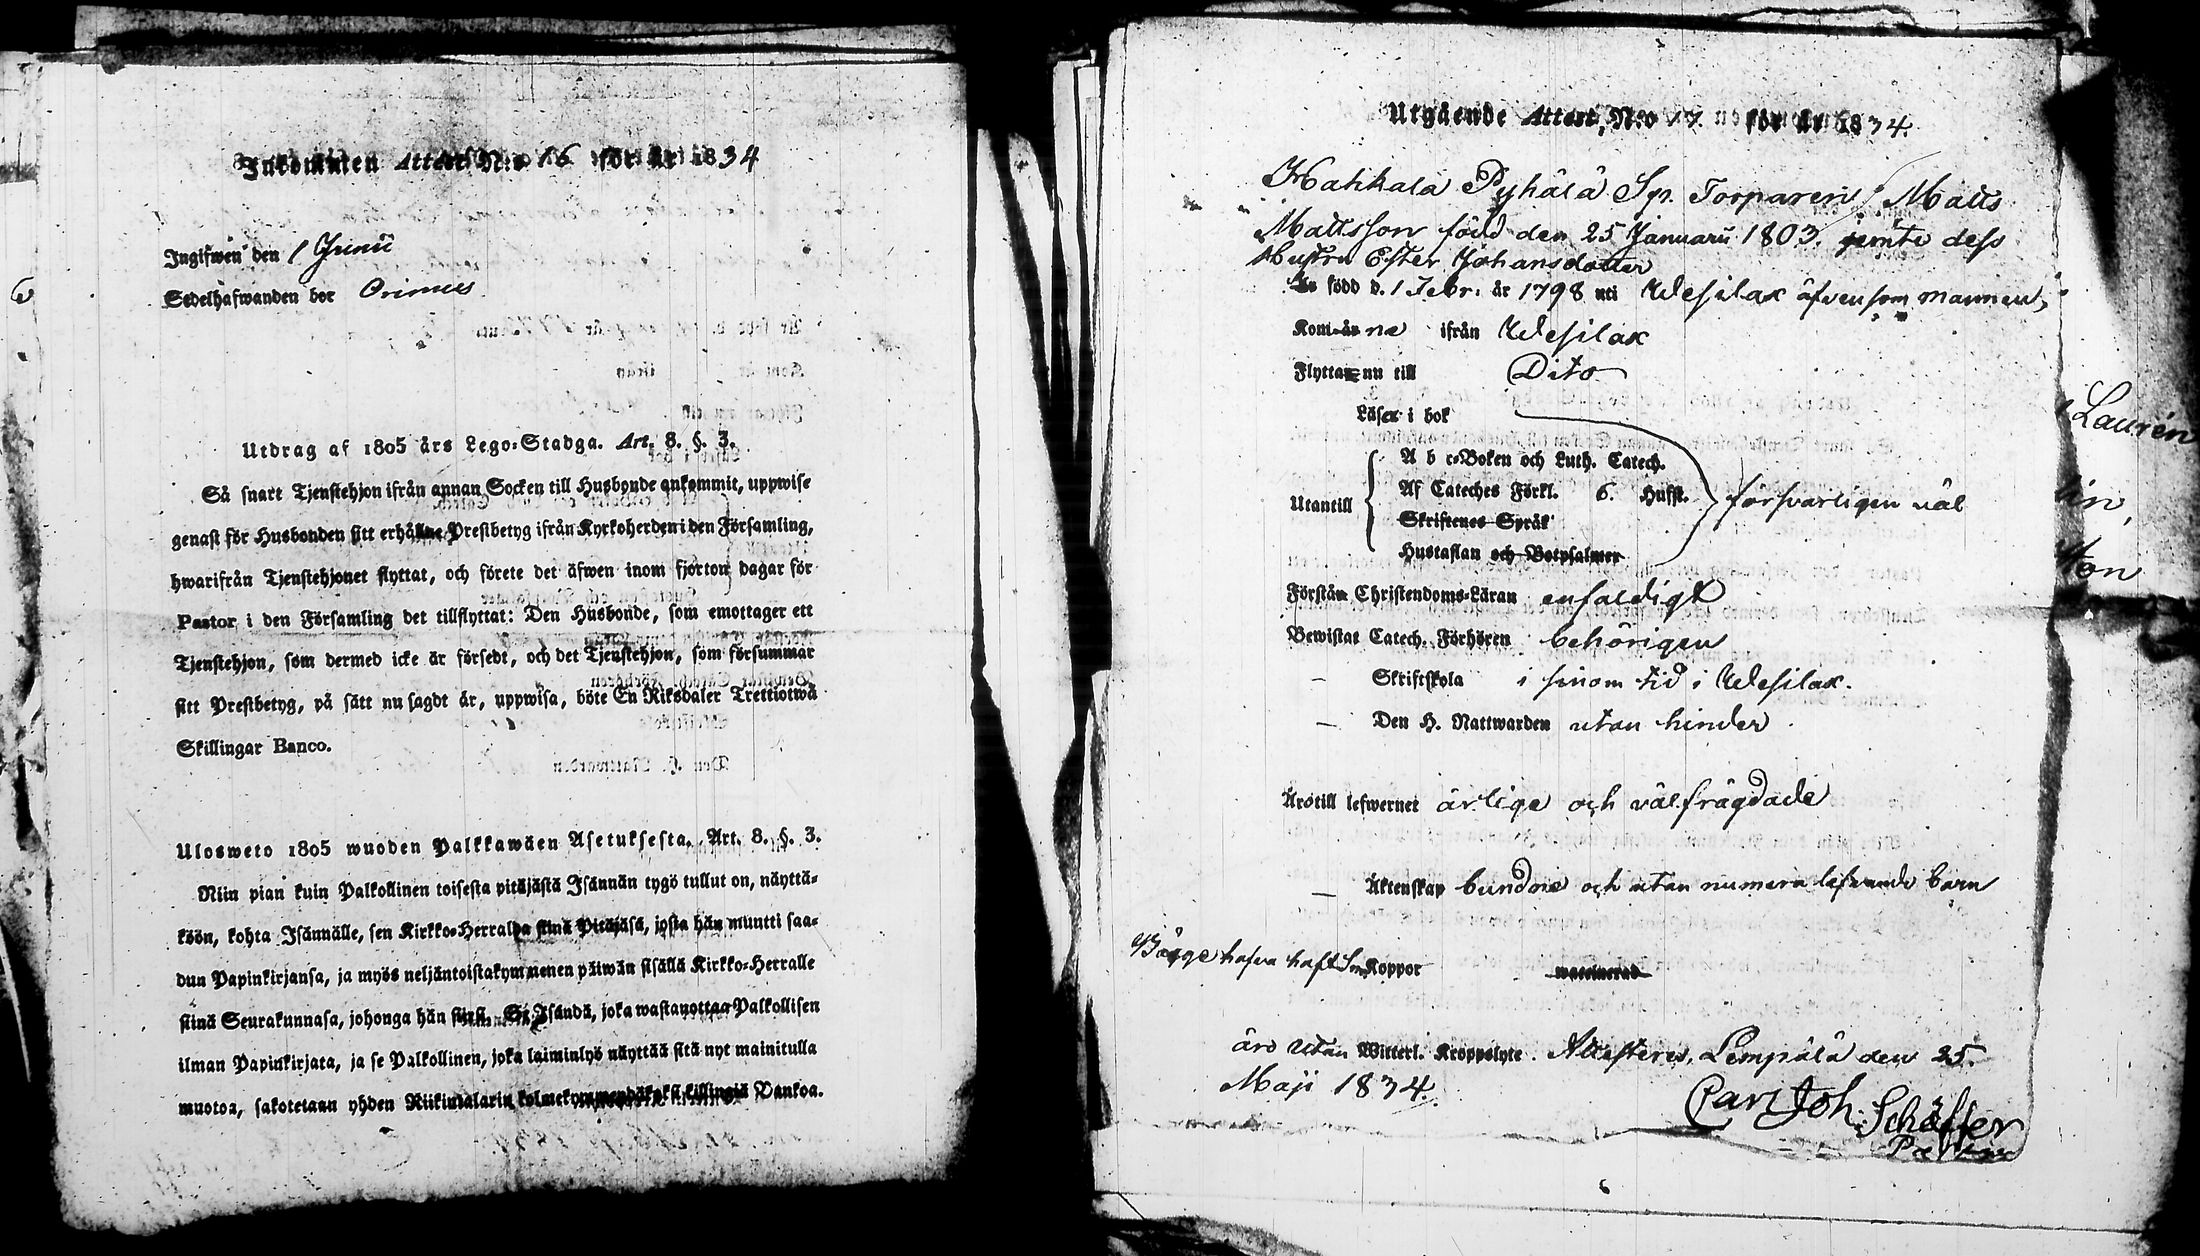 Inkommen Attest N:o 16 för år 1834
Ingifwen den 1 Junii
Sedelhafwanden bor Orimus
Utdrag af 1805 års Lego-Stadga. Art. 8. §. 3.
Så snart Tjenstehjon ifrån annan Socken till Husbonde ankommit, uppwise
genast för Husbonden sitt erhållne Prestbetyg ifrån Kyrkoherden i den Församling,
hwarifrån Tjenstehjonet flyttat, och förete det äfwen inom fjorton dagar för
Pastor i den Församling det tillflyttat: Den Husbonde, som emottager ett
Tjenstehjon, som dermed icke är försedt, och det Tjenstehjon, som försummar
sitt Prestbetyg, på sätt nu sagdt är, uppwisa, böte En Riksdaler Trettiotwå
Skillingar Banco.
Ulosweto 1805 wuoden Palkkawäen Asetuksesta. Art. 8. §. 3.
Niin pian kuin Palkollinen toisesta pitäjästä Isännän tygö tullut on, näyttä-
köön, kohta Isännälle, sen Kirkko-Herralda siinä Pitäjäsä, josta hän muutti saa-
dun Papinkirjansa, ja myös neljäntoistakymmenen päiwän sisällä Kirkko-Herralle
siinä Seurakunnasa, johonga hän siirsi. Se Isändä, joka wastanottaa Palkollisen
ilman Papinkirjata, ja se Palkollinen, joka laiminlyö näyttää sitä nyt mainitulla
muotoa, sakotetaan yhden Riikindalarin kolmekymmendäkaksi killingiä Bankoa.
Utgående Attest, N:o 17 för år 1834.
Hatikala Pyhälä Sp. Torparen Matts
Mattsson född den 25 Januarii 1803. jemte dess
Hustru Ester Johansdotter
född d. 1 Febr. år 1798 uti Wesilax äfvensom mannen,
Kom ne ifrån Wesilax
Flytta nu till Dito
Läser i bok
A b c-Boken och Luth. Catech.
Utantill Af Cateches Förkl. 6. Hufst. försvarligen väl
Skriftenes Språk
Hustaflan och Botpsalmer
Förstå Christendoms-Läran enfaldigt
Bewistat Catech. Förhören behörigen
– Skriftskola i sinom tid i Wesilax.
– Den H. Nattwarden utan hinder
Äro till lefwernet ärlige och välfrägdade
– Äktenskap bundne och utan numera lefvande barn
Bägge hafva haft Sm Koppor vaccinerad
äro utan Witterl. Kroppslyte. Attesteras, Lempälä den 25.
Maji 1834.
Carl Joh. Schäffer
Pastor
Laurén